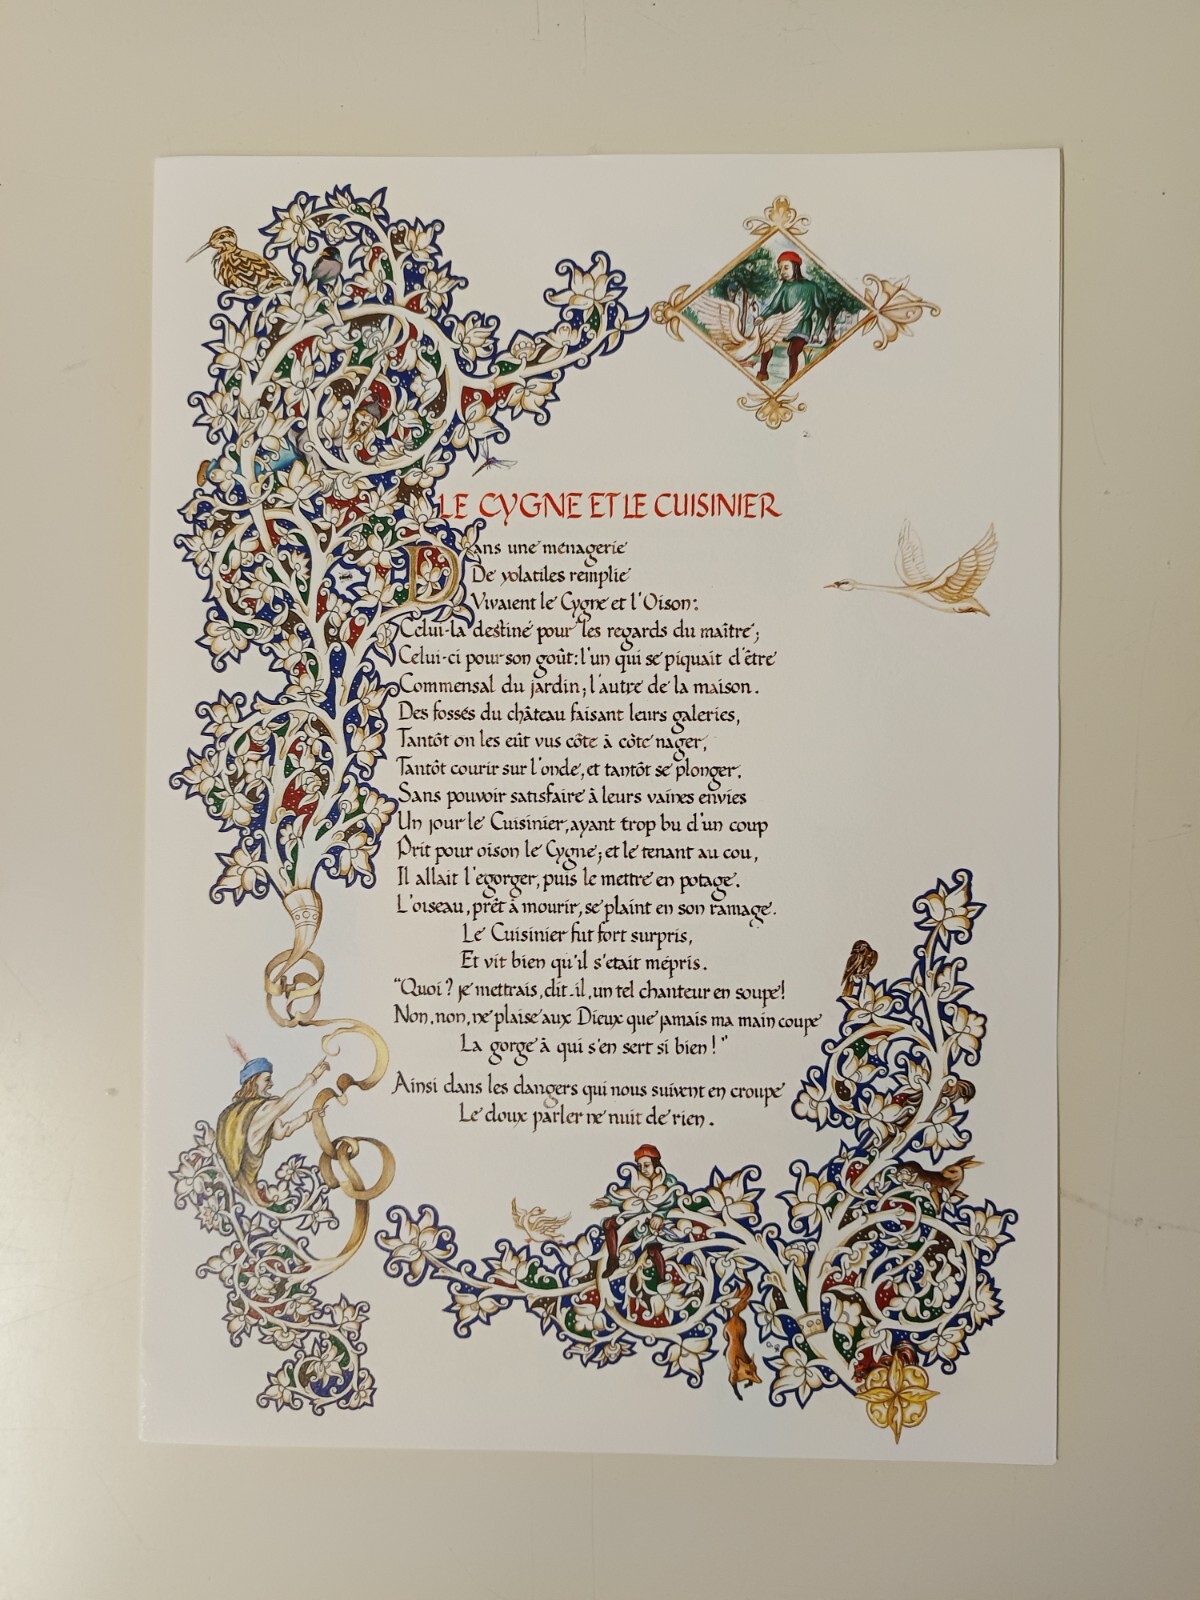 LE CYGNE ET LE CUISINIER
Dans une ménagerie
De volatiles remplie
Vivaient le Cygne et l'Oison:
Celui-là destiné pour les regards du maître;
Celui-ci pour son goût: l'un qui se piquait d'être
Commensal du jardin; l'autre de la maison.
Des fossés du château faisant leurs galeries,
Tantôt on les eût vus côte à côte nager,
Tantôt courir sur l'onde, et tantôt se plonger,
Sans pouvoir satisfaire à leurs vaines envies
Un jour le Cuisinier, ayant trop bu d'un coup
Prit pour oison le Cygne; et le tenant au cou,
Il allait l'égorger, puis le mettre en potage.
L'oiseau, prêt à mourir, se plaint en son ramage.
Le Cuisinier fut fort surpris,
Et vit bien qu'il s'était mépris.
"Quoi? je mettrais, dit-il, un tel chanteur en soupe!
Non, non, ne plaise aux Dieux que jamais ma main coupe
La gorge à qui s'en sert si bien!"
Ainsi dans les dangers qui nous suivent en croupe
Le doux parler ne nuit de rien.